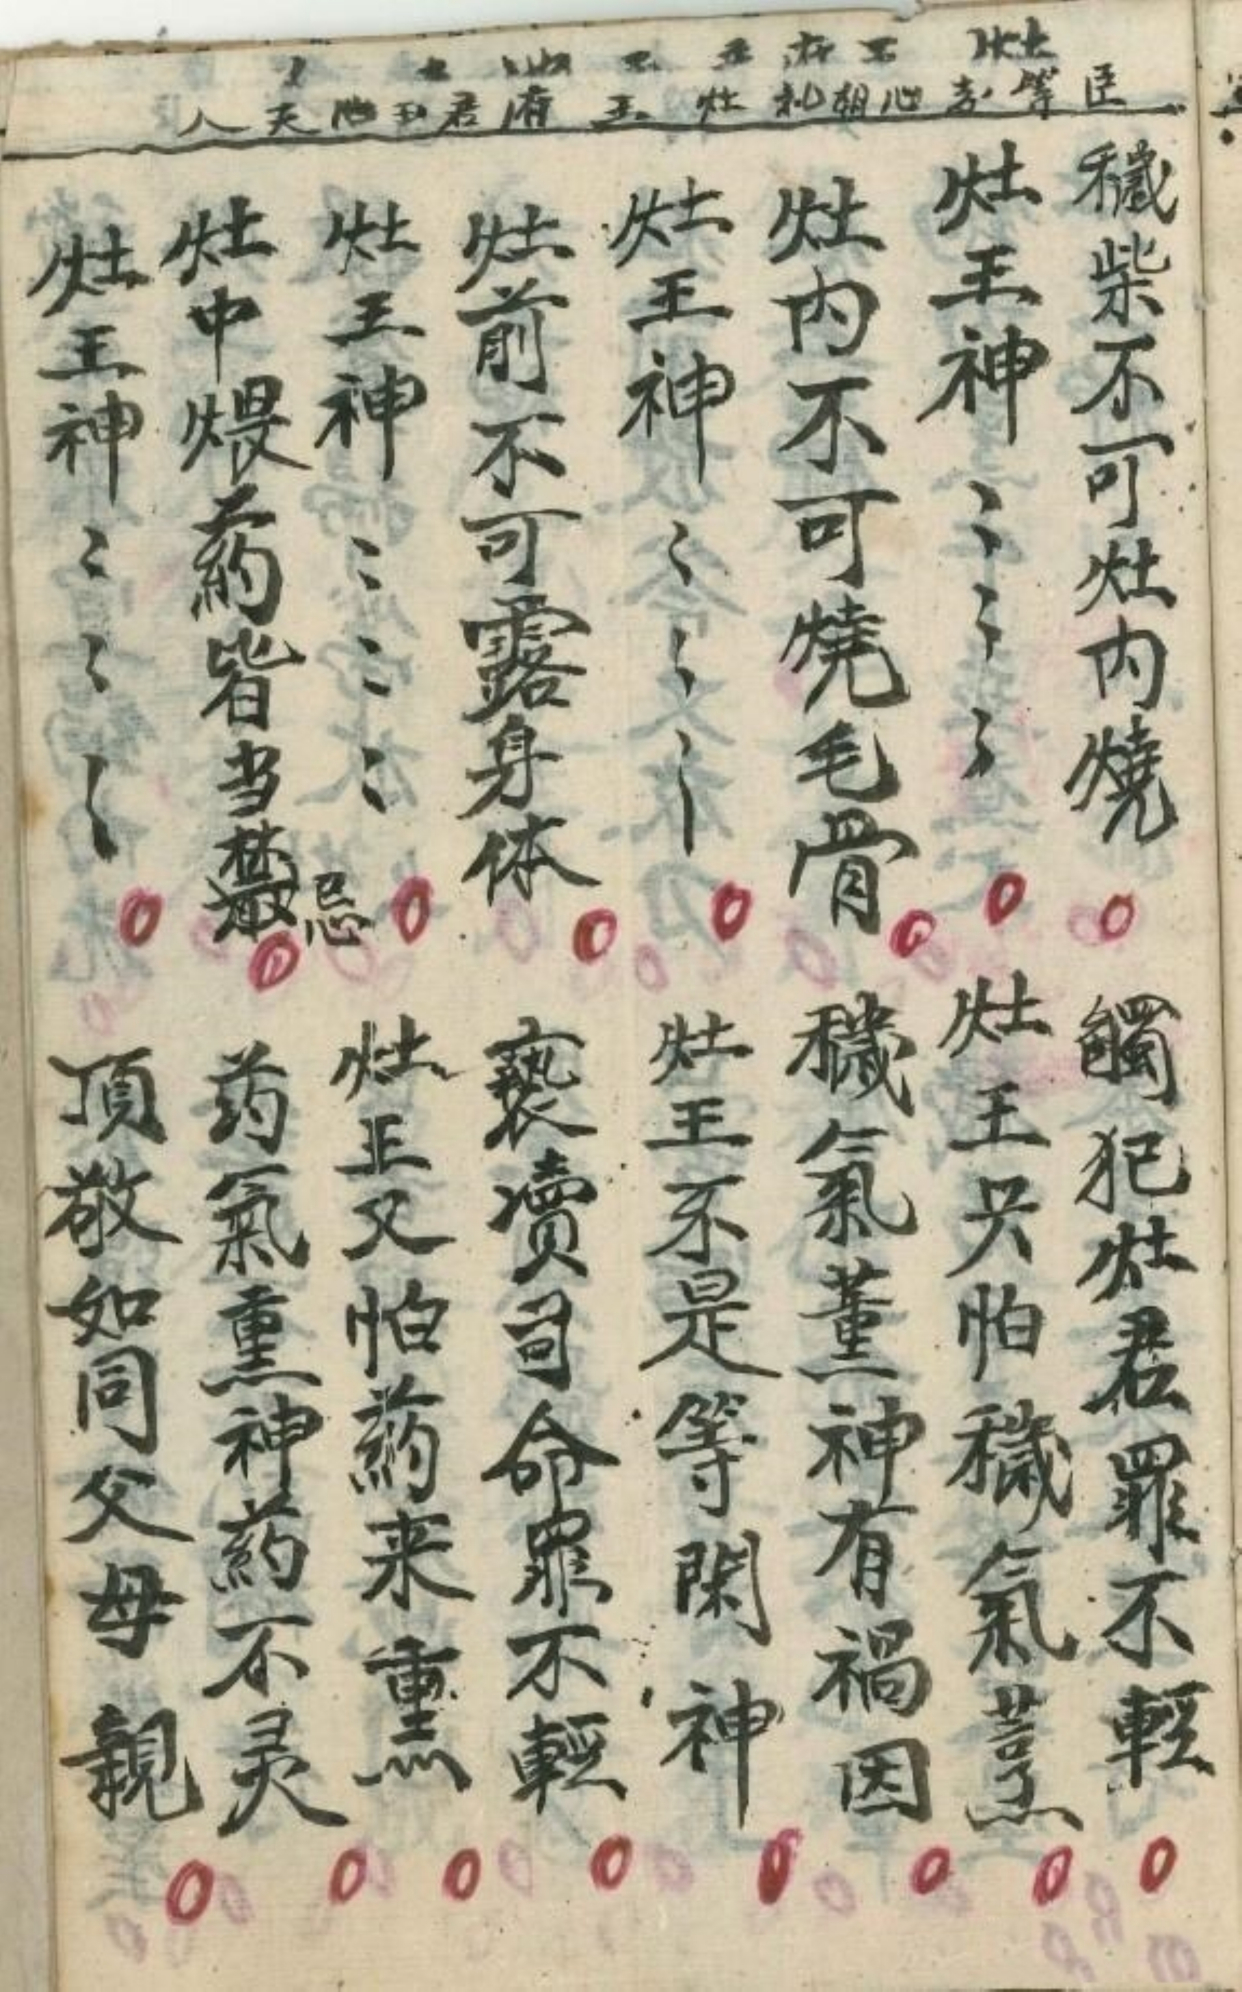 臣等志心朝礼灶王府君玉池夫人
穢柴不可灶内燒 觸犯灶君罪不輕
灶王神〻〻〻 灶王只怕穢氣薰
灶内不可燒毛骨 穢氣薰神有禍因
灶王神〻〻〻 灶王不是等閑神
灶前不可露身体 褻瀆司命罪不輕
灶王神〻〻〻 灶王又怕葯来熏
灶中煨葯皆当禁忌 药氣熏神葯不灵
灶王神〻〻〻 頂敬如同父母親